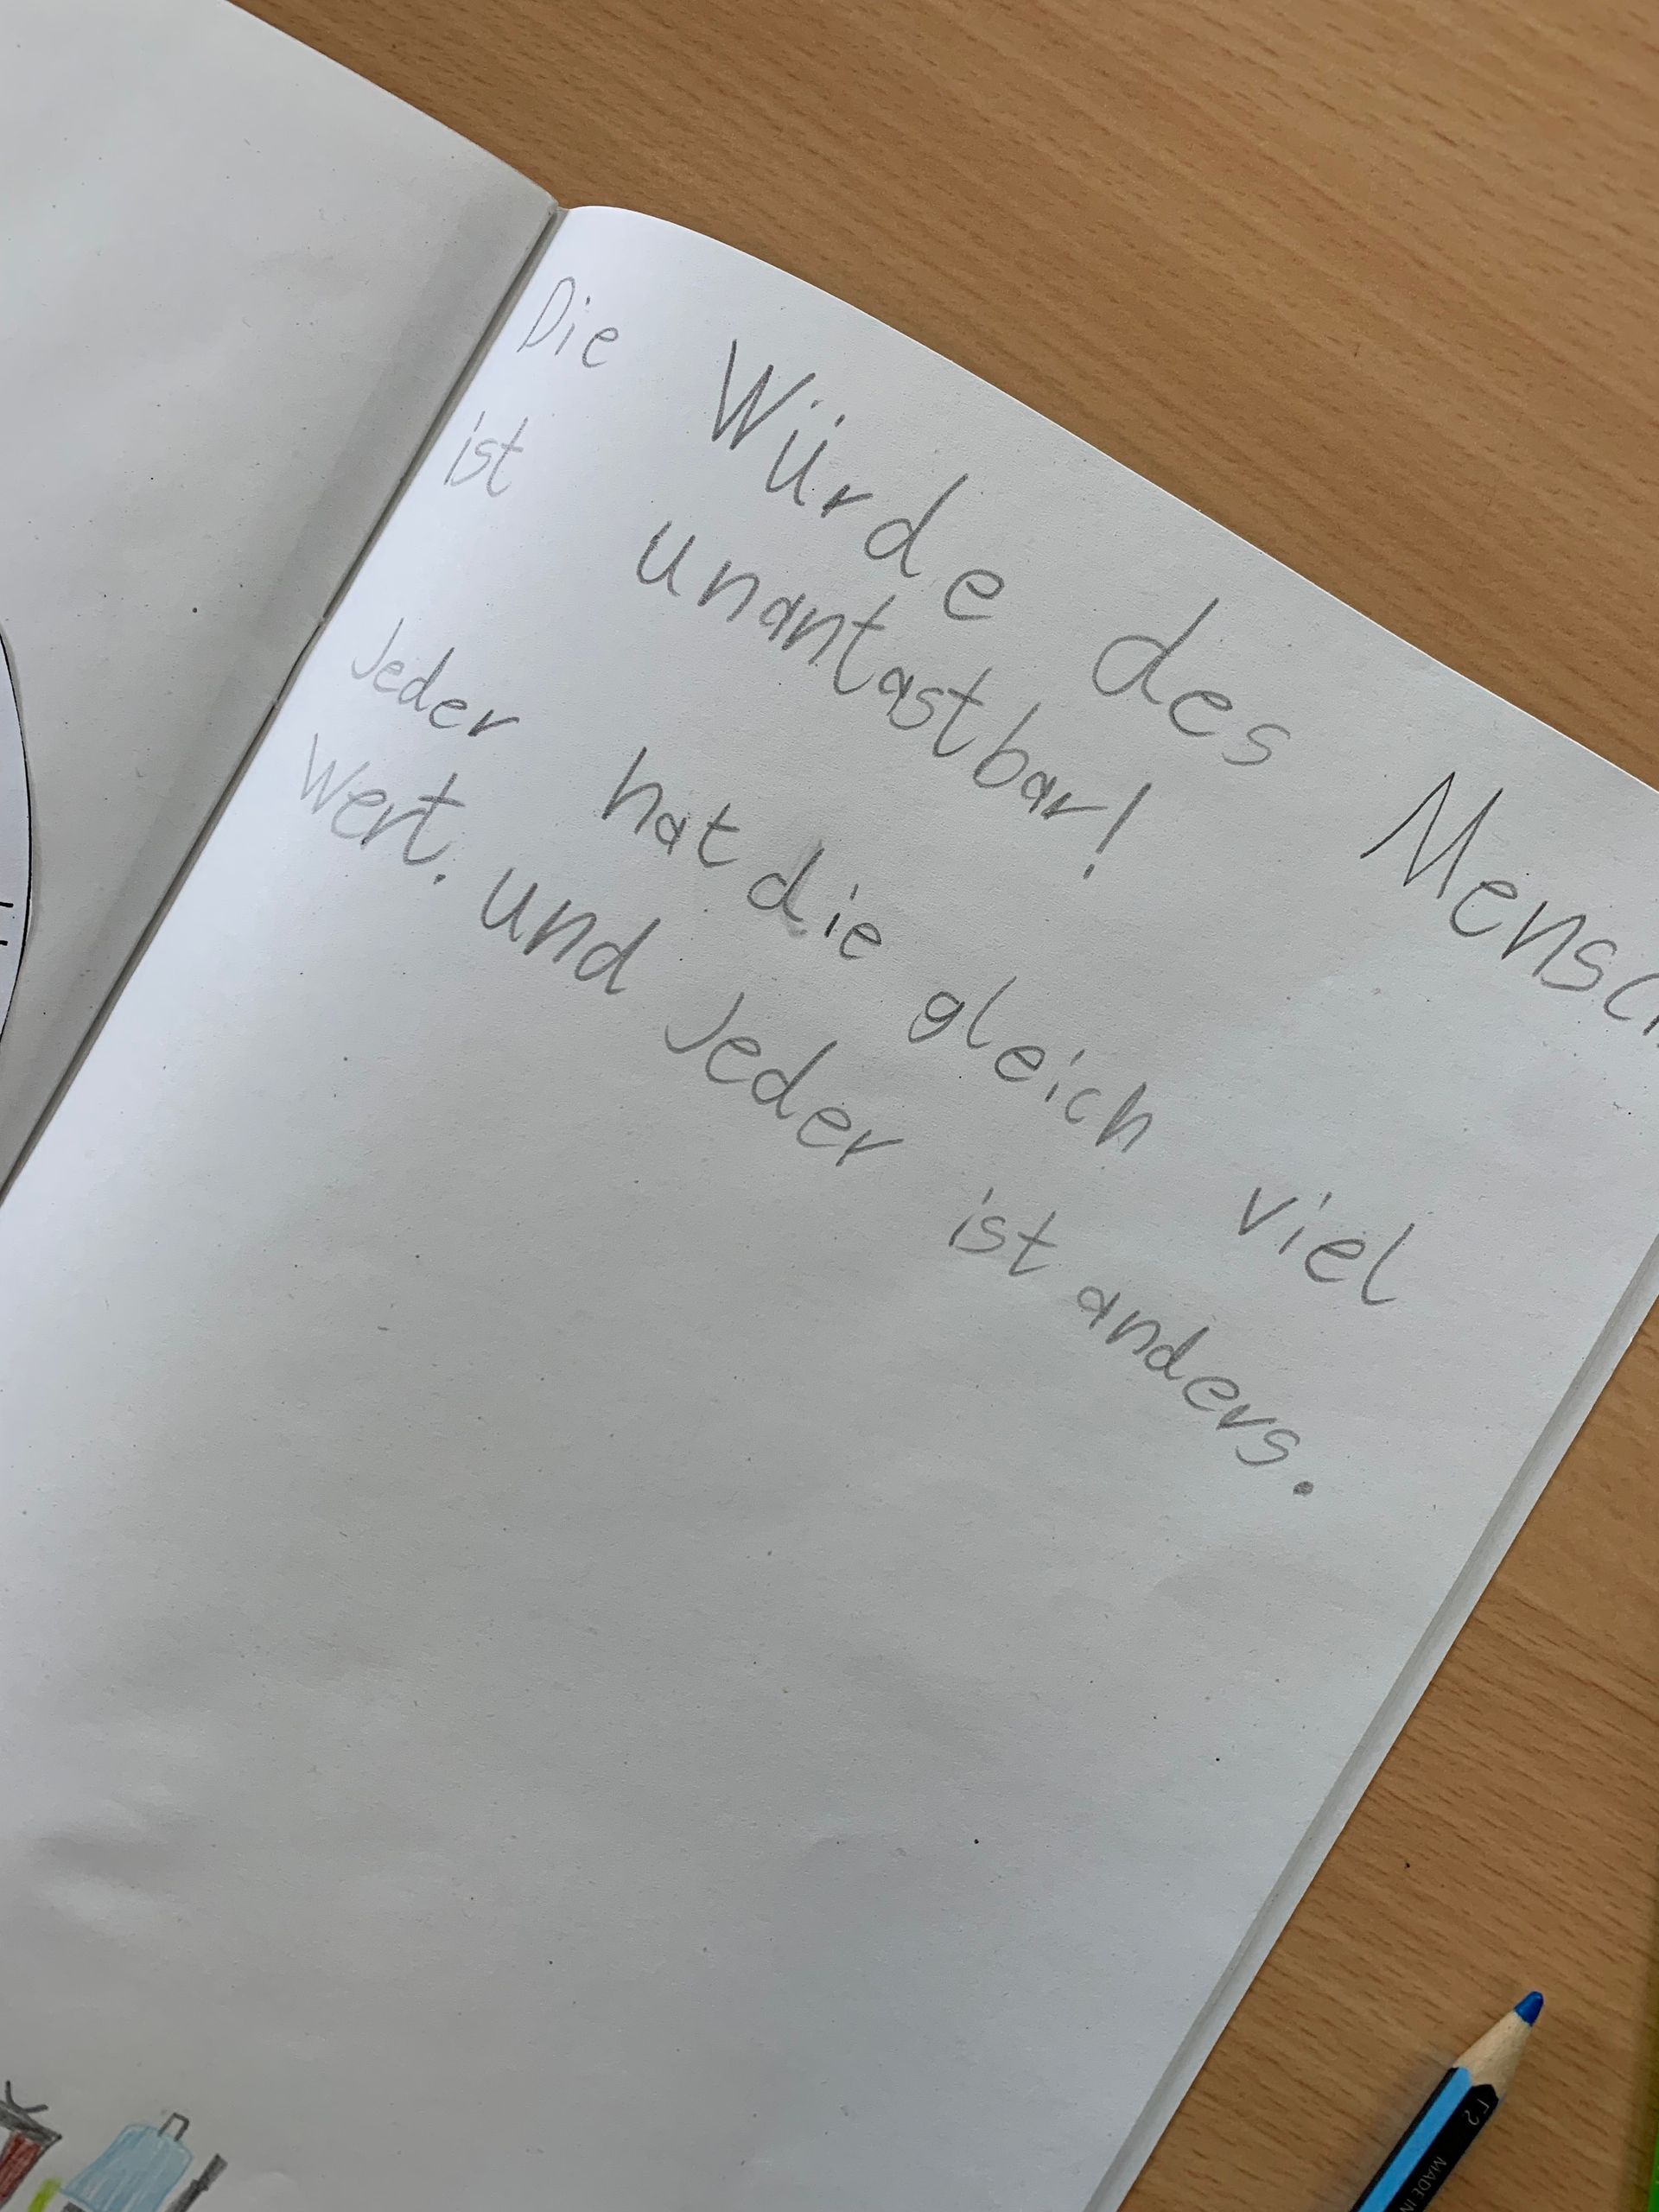 Die Würde des Mensch
ist unantastbar!
Jeder hat die gleich viel
Wert. und Jeder ist anders.
MADE IN